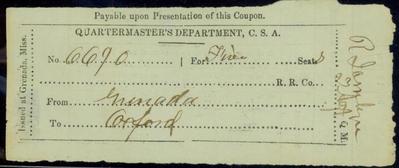 Payable upon Presentation of this Coupon.
QUARTERMASTER'S DEPARTMENT, C. S. A.
Issued at Grenada, Miss.
No. 6690 For Five Seats
R. R. Co.
From Grenada
To Oxford
Q. M.